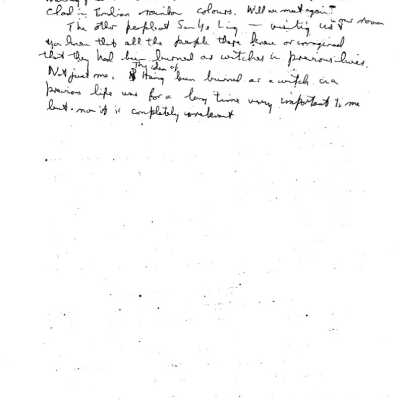 clad in Indian rainbow colours. Will we meet again?
The other people at San Yo Ling — visiting us & our room
you know that all the people there knew or imagined
that they had been burned as witches in previous lives.
Not just me. The idea of Having been burned as a witch in a
previous life was for a long time very important to me
but now it is completely irrelevant